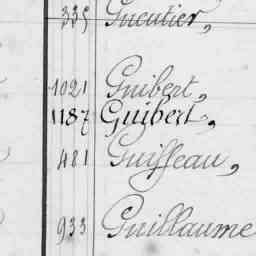 335 Gueutier,
1021 Guibert,
1187 Guibert,
481 Guisseau,
933 Guillaume